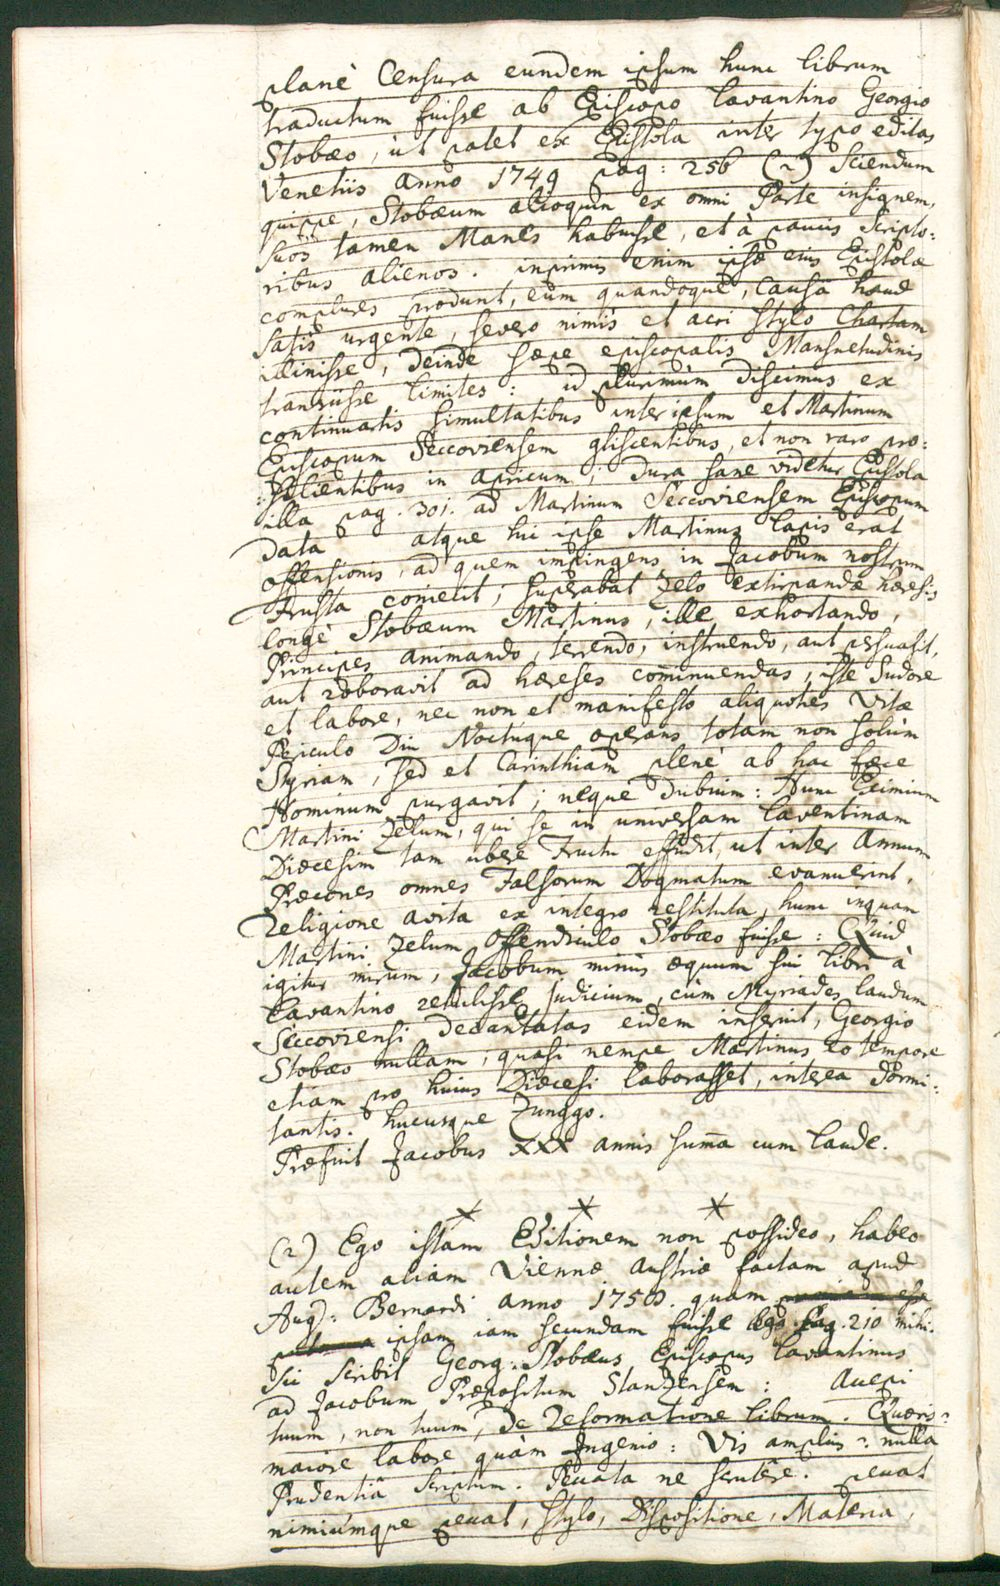 planè Censura eundem ipsum hunc librum
traductum fuisse ab Episcopo Lavantino Georgio
Stobæo, ùt patet ex Epistola inter typo editas
Venetiis anno 1749 pag: 256 (2) Sciendum
quippe, Stobæum alioquin ex omni Parte insignem,
suos tamen Manes habuisse, et à paucis Scripto:
ribus alienos. inprimis enim ipsæ eius Epistolæ
complures produnt, eum quandoque, Causâ haud
satis urgente, severo nimis et acri stylo Chartam
illinisse, deinde sæpe episcopalis Mansuetudinis
transiisse limites: id plurimùm discimus ex
continuatis simultatibus inter ipsum et Martinum
Episcopum Seccoviensem gliscentibus, et non raro pro:
:silientibus in apricum; dura sane videtur Epistola
illa pag. 301. ad Martinum Seccoviensem Episcopum
data atque hic ipse Martinus lapis erat
offensionis, ad quem impingens in Jacobum nostrum
Frusta coniecit; superabat Zelo extirpandæ hæresis
longè Stobæum Martinus, ille exhortando,
Principes animando, terrendo, instruendo, aut persuasit,
aut roboravit ad hæreses comminuendas, iste Sudore
et labore, nec non et manifesto aliquoties Vitæ
Periculo Diu Noctuque operans totam non solùm
Styriam, sed et Carinthiam plenè ab hac fæce
Hominum purgavit; neque dubium: Hunc Eximium
Martini Zelum, qui se in universam Laventinam
Diœcesim tam ubere Fructu effudit, ut inter Annum
Præcones omnes Falsorum Dogmatum evanuerint,
Religione avita ex integro restituta, hunc inquam
Martini Zelum Offendiculo Stobæo fuisse: Quid
igitur mirum, Jacobum minùs æquum sui libri à
Lavantino retulisse Judicium, cùm Myriades laudum
Seccoviensi decantatas eidem inseruit, Georgio
Stobæo nullam, quasi nempe Martinus eo tempore
etiam pro huius Diœcesi laborasset, interea dormi:
tantis. hucusque Zunggo.
Præfuit Jacobus XXX annis summa cum laude.
(2) Ego istam Editionem non possideo, habeo
autem aliam Viennæ Austriæ factam apud
Aug: Bernardi anno 1758. quam
ipsam iam secundam fuisse lego. Pag. 210 mihi.
sic scribit Georg: Stobæus Episcopus Lavantinus
ad Jacobum Præpositum Stanzensem: Accepi
tuum, non tuum, de Reformatione librum. Quæris?
maiore labore quàm Ingenio: Vis amplius? nulla
Prudentiâ scriptum. Peccata ne scrutêre. peccat
nimiùmque peccat, stylo, Dispositione, Materia,